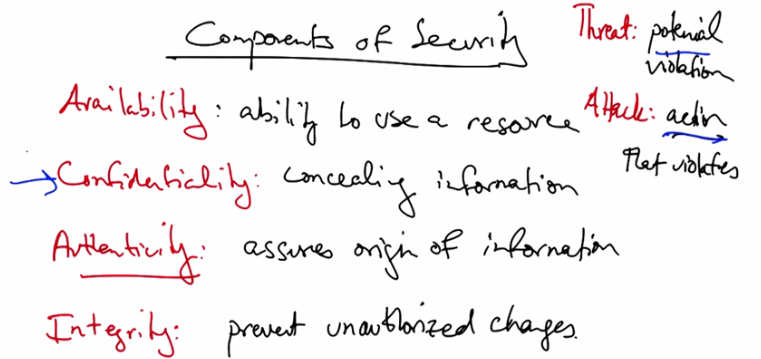 Components of Security
Threat: potenial
violation
Availability: ability to use a resource
Attack: action
that violates
Confidentiality: concealing information
Authenticity: assures origin of information
Integrity: prevent unauthorized changes.